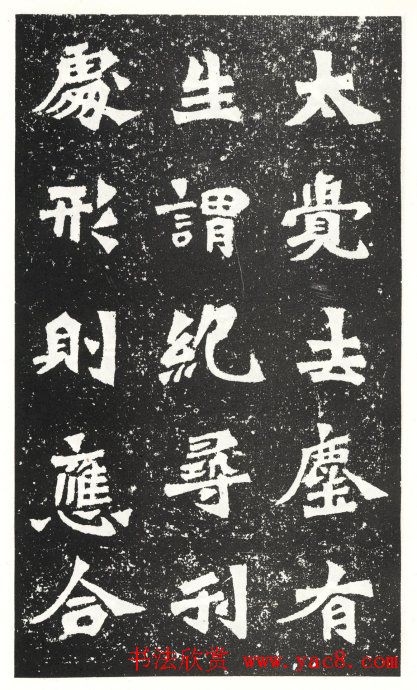 太覺去塵有
生謂紀尋刊
處形則應合
书法欣赏 www.yac8.com